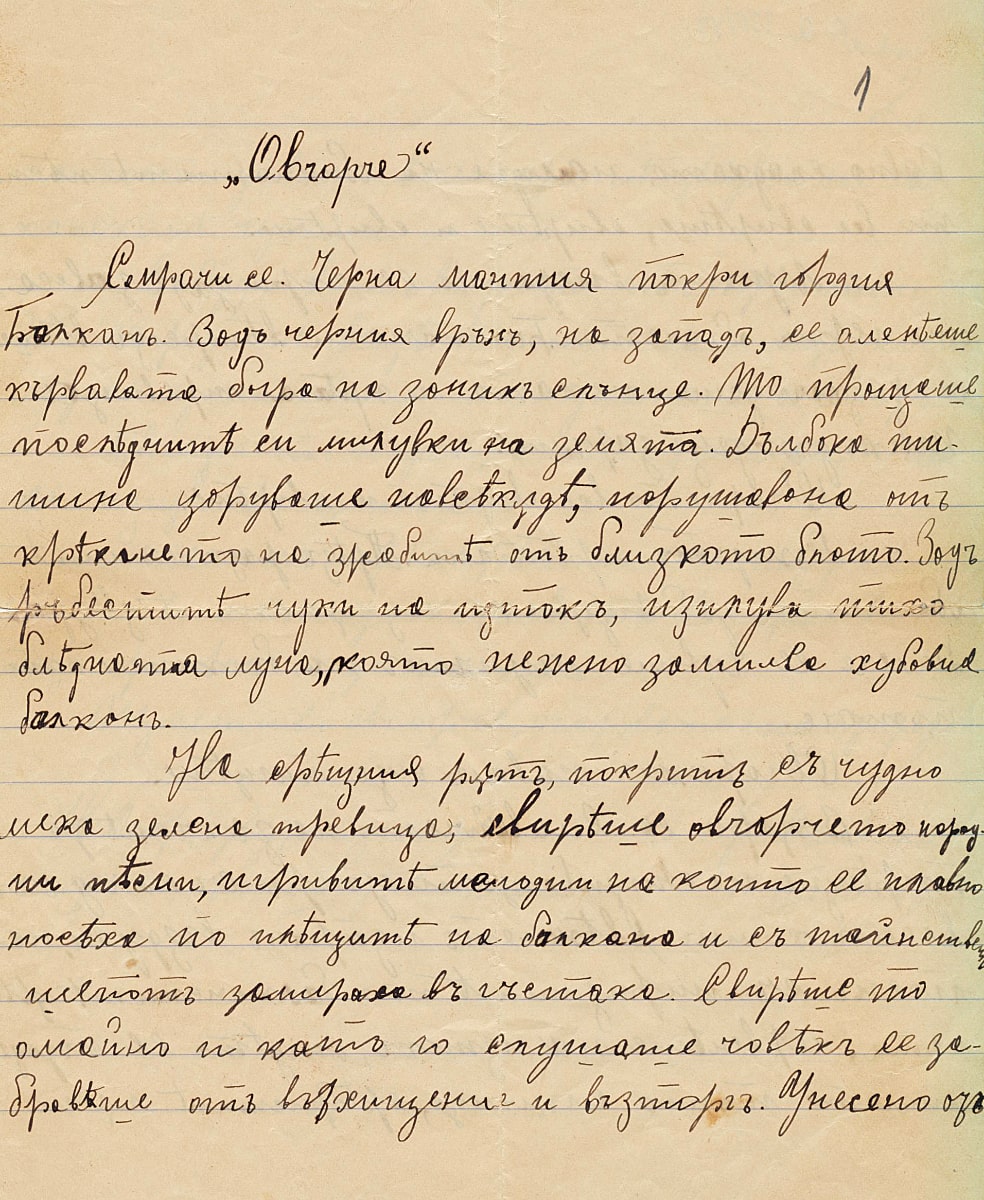 1
„Овчарче“
Смрачи се. Черна мантия покри гордия
Балканъ. Задъ черния връхъ, на западъ, се аленѣеше
кървавата багра на заникъ слънце. То прощаше
послѣднитѣ си милувки на земята. Дълбока ти-
шина царуваше навсѣкѫдѣ, нарушавана отъ
крѣкането на жабитѣ отъ близкото блото. Задъ
ръбеститѣ чуки на изтокъ, изплува тихо
блѣдната луна, която нежно замилва хубавия
балканъ.
На срѣщния рѫтъ, покритъ съ чудно
мека зелена тревица, свирѣше овчарчето народ-
ни пѣсни, игривитѣ мелодии на които се плавно
носѣха по плѣщитѣ на балкана и съ тайнственъ
шепотъ замираха въ гъстака. Свирѣше то
омайно и катъ го слушаше човѣкъ се за-
бравѣше отъ възхищение и възторгъ. Унесено